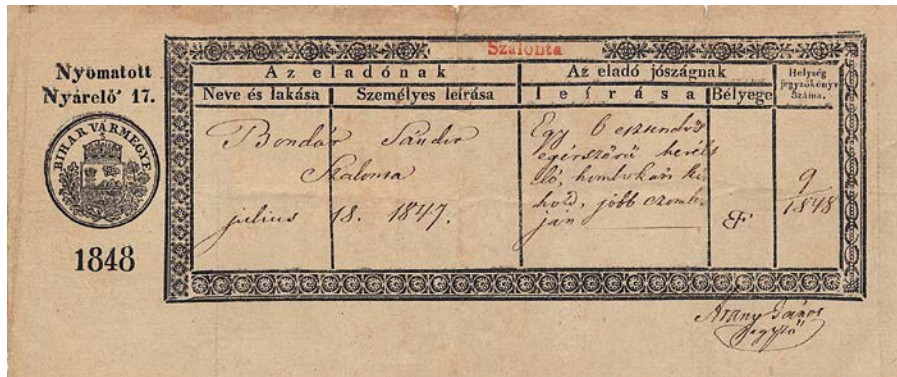 Szalonta
Nyomatott
Nyárelő' 17.
BIHAR VÁRMEGYE
1848
Az eladónak
Az eladó jószágnak
Helység
jegyzőkönyv
száma.
Neve és lakása
Személyes leírása
leírása
Bélyege
Bondár Sándor
Szalonta
julius 18. 1847.
Egy 6 esztendős
egérszőrű herélt
ló, homlokán kis
hold, jobb czomb-
ján
9
1848
Arany János
jegyző